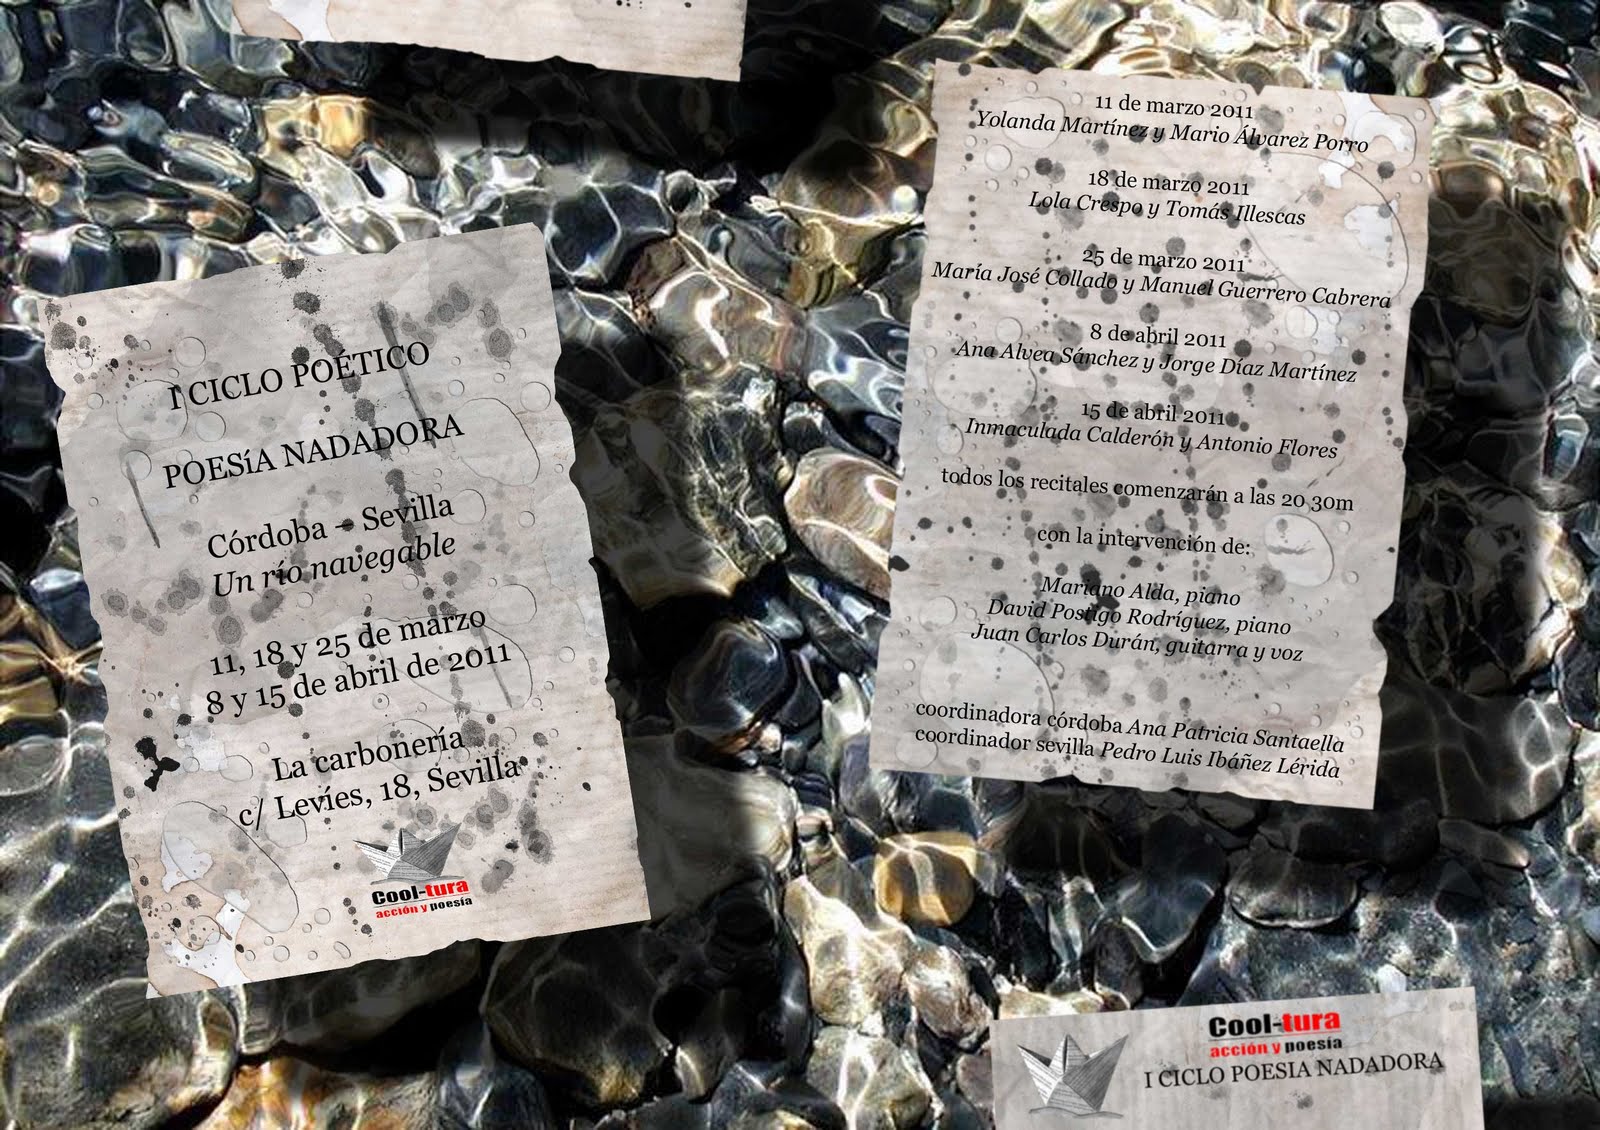 I CICLO POÉTICO
POESíA NADADORA
Córdoba – Sevilla
Un río navegable
11, 18 y 25 de marzo
8 y 15 de abril de 2011
La carbonería
c/ Levíes, 18, Sevilla
Cool-tura
acción y poesía
11 de marzo 2011
Yolanda Martínez y Mario Álvarez Porro
18 de marzo 2011
Lola Crespo y Tomás Illescas
25 de marzo 2011
María José Collado y Manuel Guerrero Cabrera
8 de abril 2011
Ana Alvea Sánchez y Jorge Díaz Martínez
15 de abril 2011
Inmaculada Calderón y Antonio Flores
todos los recitales comenzarán a las 20 30m
con la intervención de:
Mariano Alda, piano
David Postigo Rodríguez, piano
Juan Carlos Durán, guitarra y voz
coordinadora córdoba Ana Patricia Santaella
coordinador sevilla Pedro Luis Ibáñez Lérida
Cool-tura
acción y poesía
I CICLO POESIA NADADORA